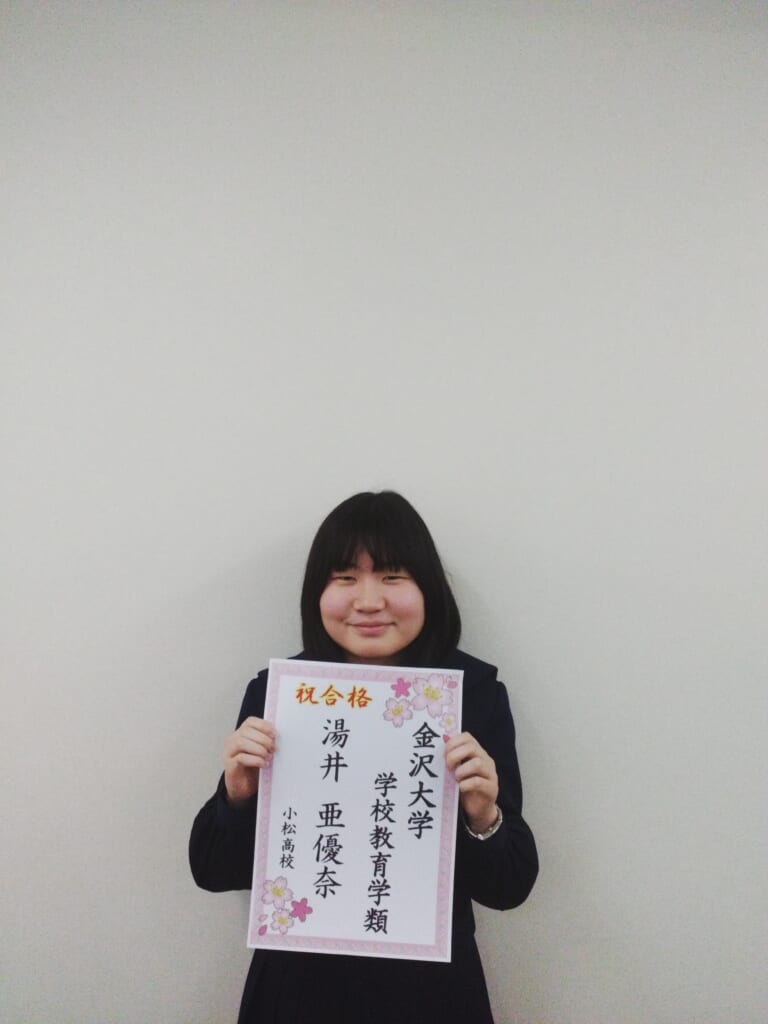 祝合格
金沢大学
学校教育学類
湯井 亜優奈
小松高校